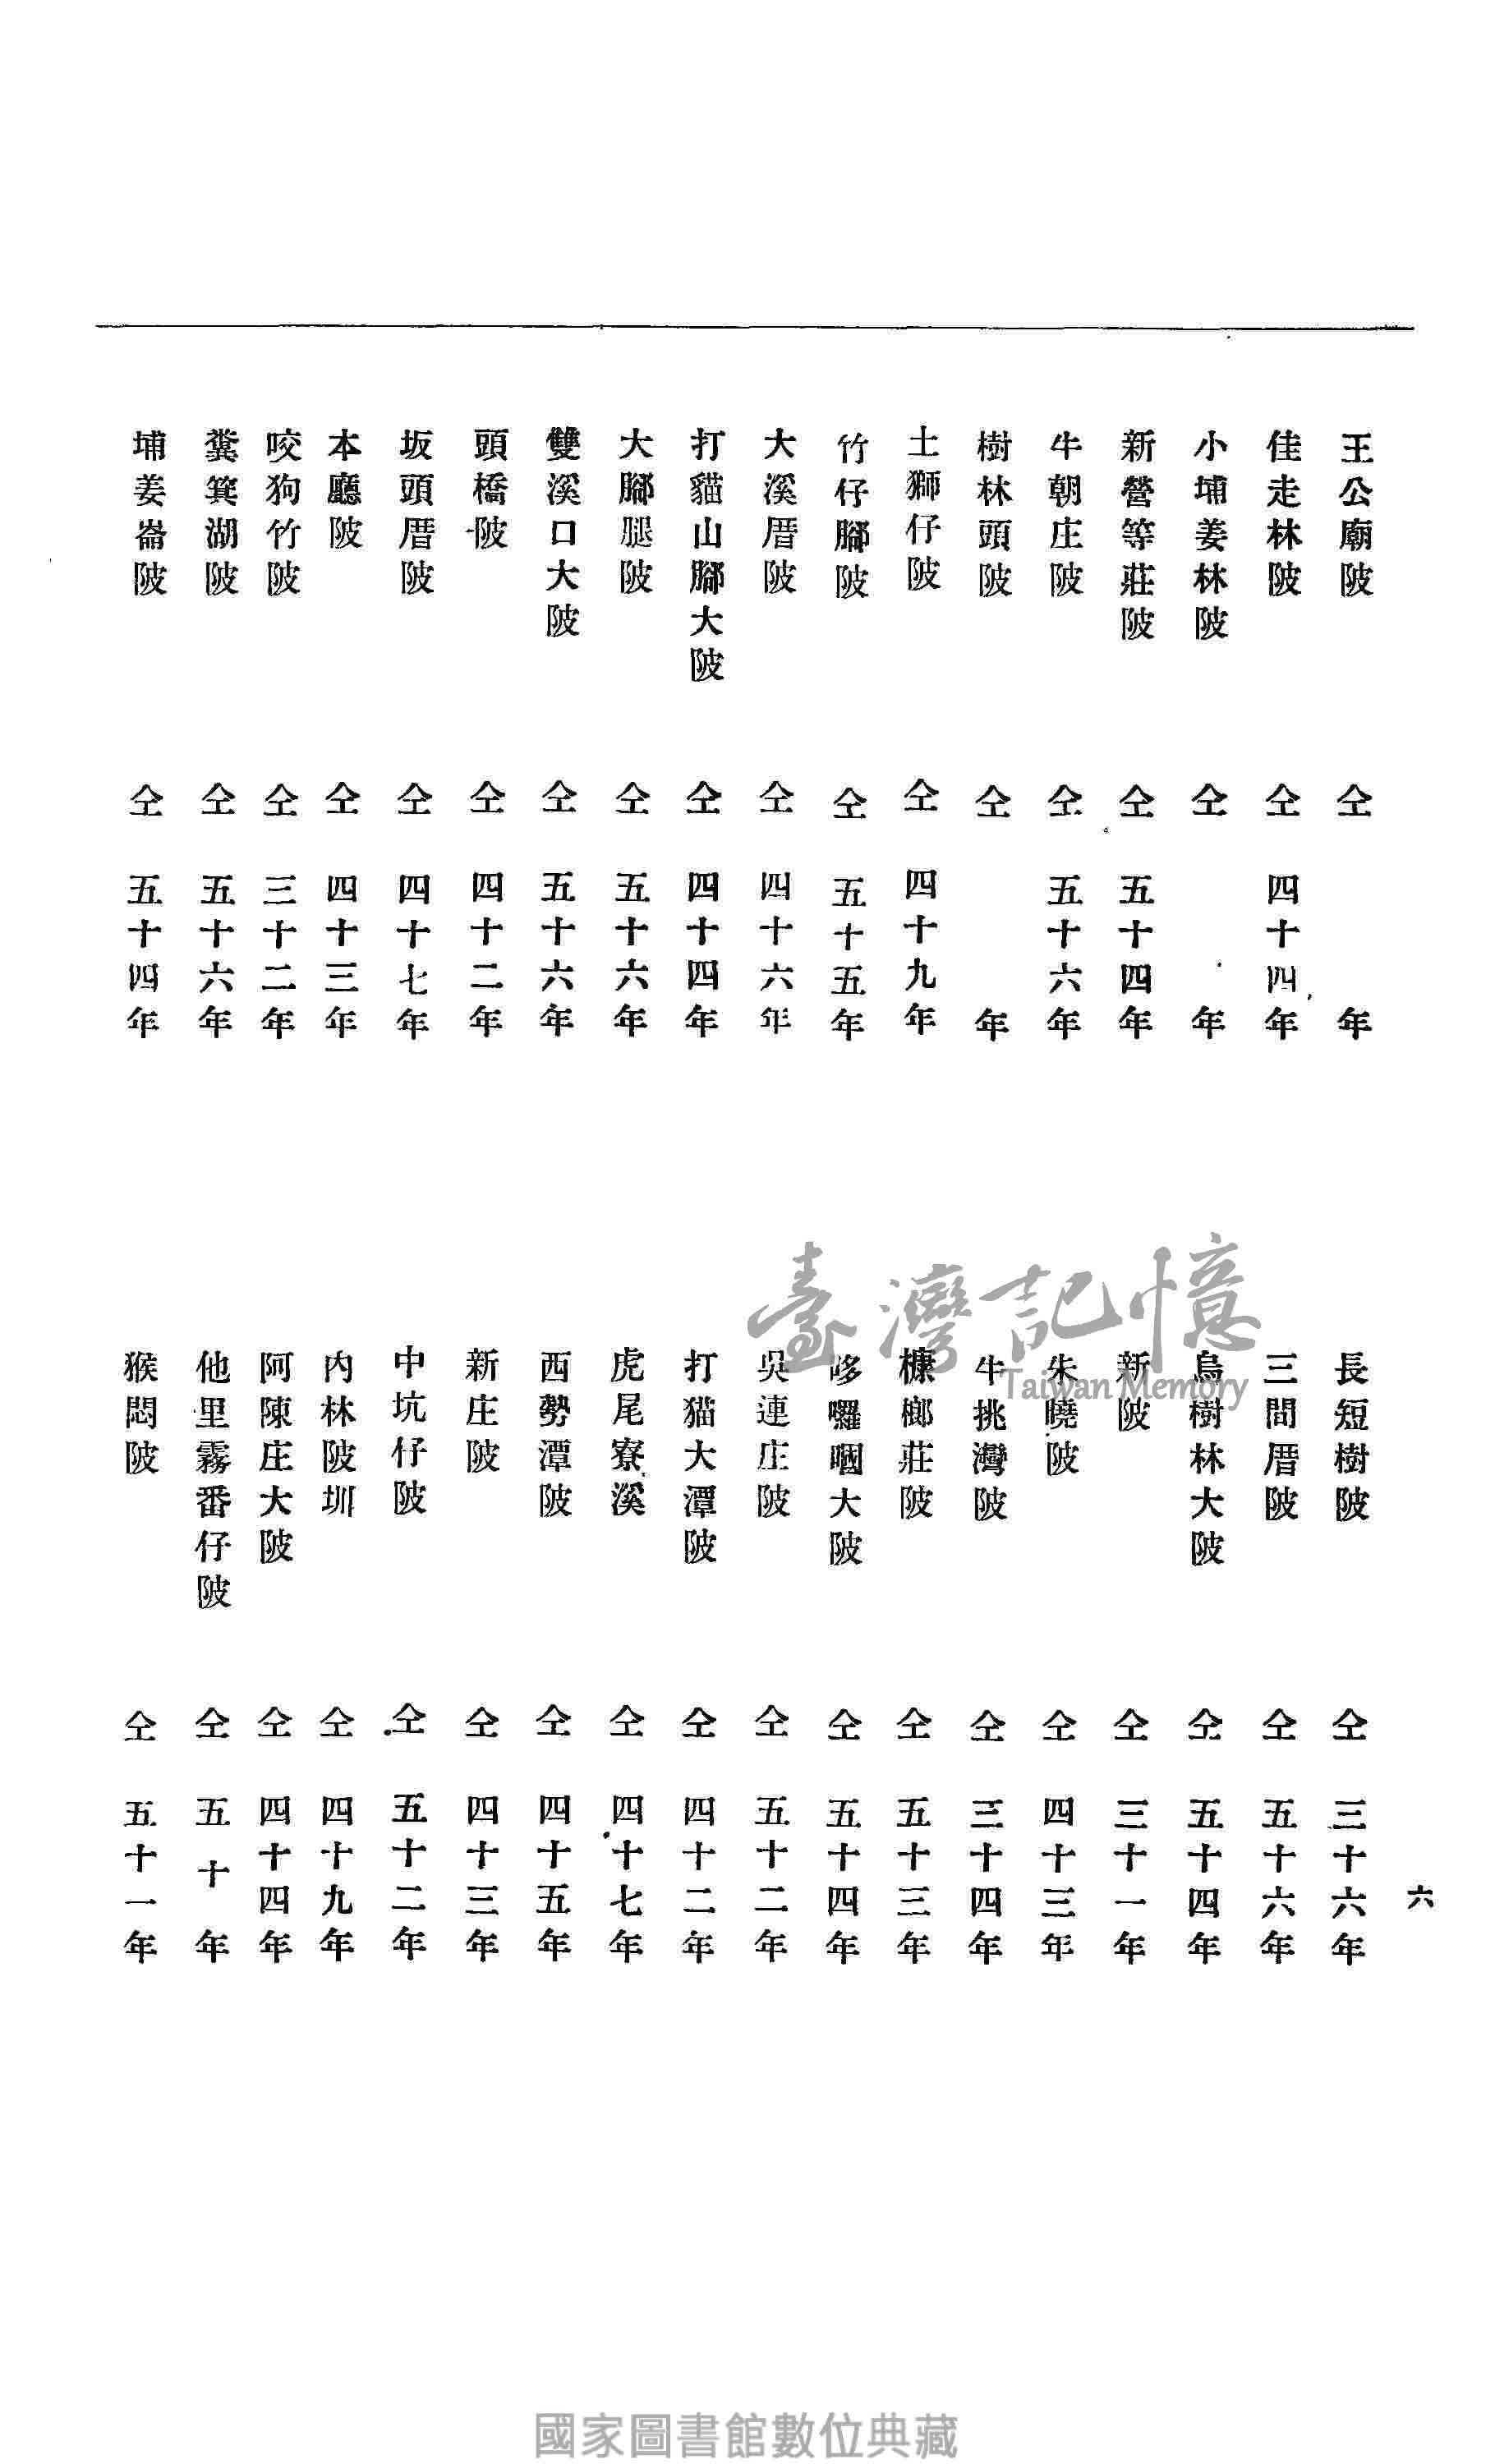 王公廟陂 仝 年
佳走林陂 仝 四十四年
小埔姜林陂 仝 年
新營等莊陂 仝 五十四年
牛朝庄陂 仝 五十六年
樹林頭陂 仝 年
土獅仔陂 仝 四十九年
竹仔腳陂 仝 五十五年
大溪厝陂 仝 四十六年
打貓山腳大陂 仝 四十四年
大腳腿陂 仝 五十六年
雙溪口大陂 仝 五十六年
頭橋陂 仝 四十二年
坂頭厝陂 仝 四十七年
本廳陂 仝 四十三年
咬狗竹陂 仝 三十二年
糞箕湖陂 仝 五十六年
埔姜崙陂 仝 五十四年
長短樹陂 仝 三十六年
三間厝陂 仝 五十六年
烏樹林大陂 仝 五十四年
新陂 仝 三十一年
朱曉陂 仝 四十三年
牛挑灣陂 仝 三十四年
槺榔莊陂 仝 五十三年
哆囉嘓大陂 仝 五十四年
吳連庄陂 仝 五十二年
打猫大潭陂 仝 四十二年
虎尾寮溪 仝 四十七年
西勢潭陂 仝 四十五年
新庄陂 仝 四十三年
中坑仔陂 仝 五十二年
內林陂圳 仝 四十九年
阿陳庄大陂 仝 四十四年
他里霧番仔陂 仝 五十年
猴悶陂 仝 五十一年
六
臺灣記憶
Taiwan Memory
國家圖書館數位典藏